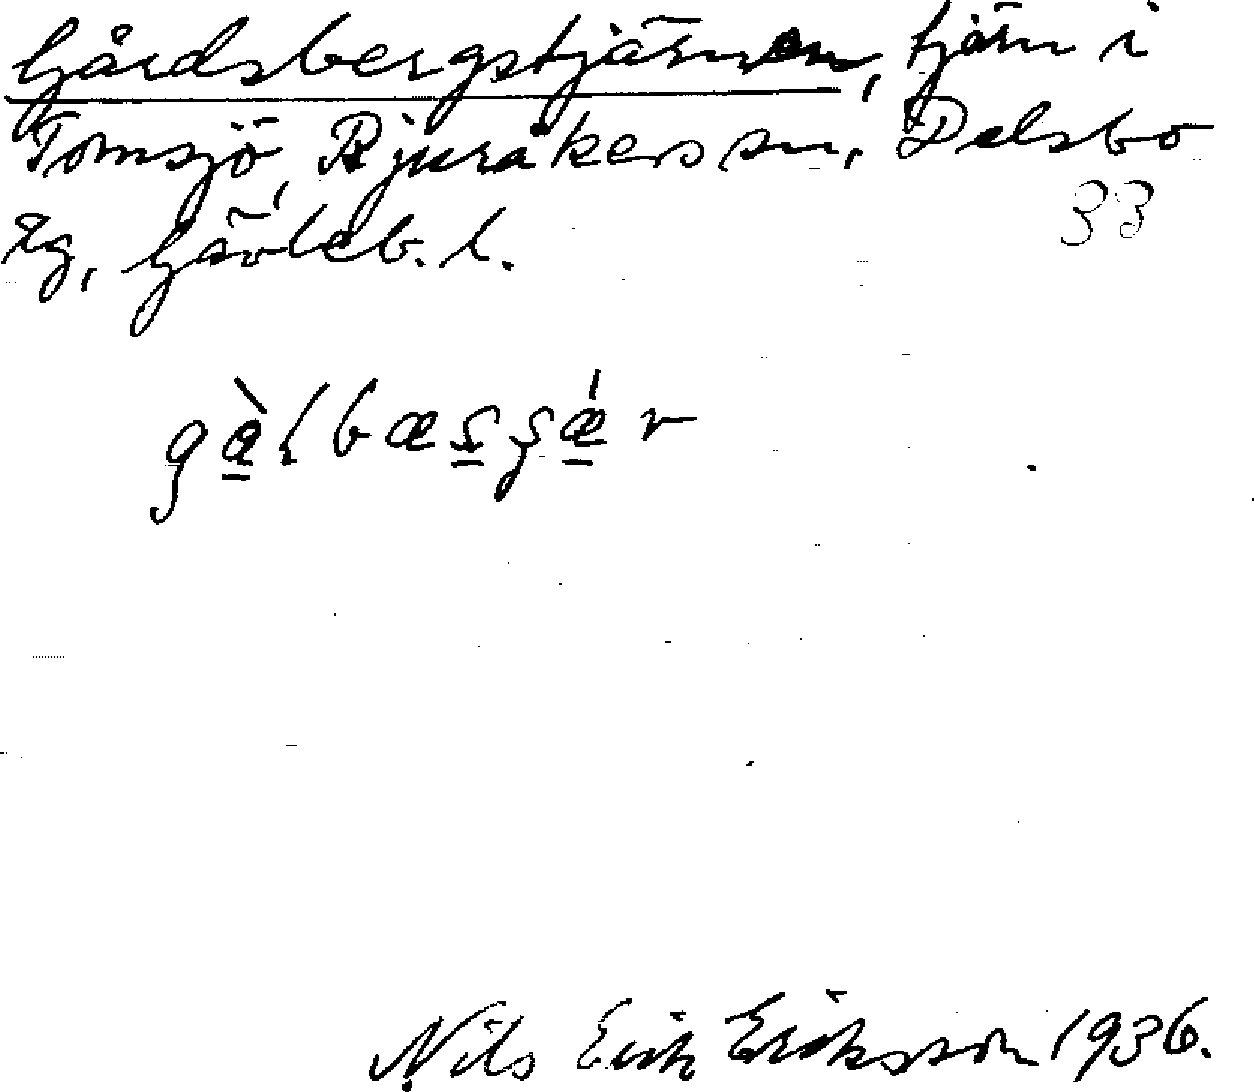 Gårdsbergstjärnen, tjärn i
Tomsjö, Bjuråkers sn, Delsbo
tg, Gävleb. l.
33
Nils Erik Eriksson 1936.